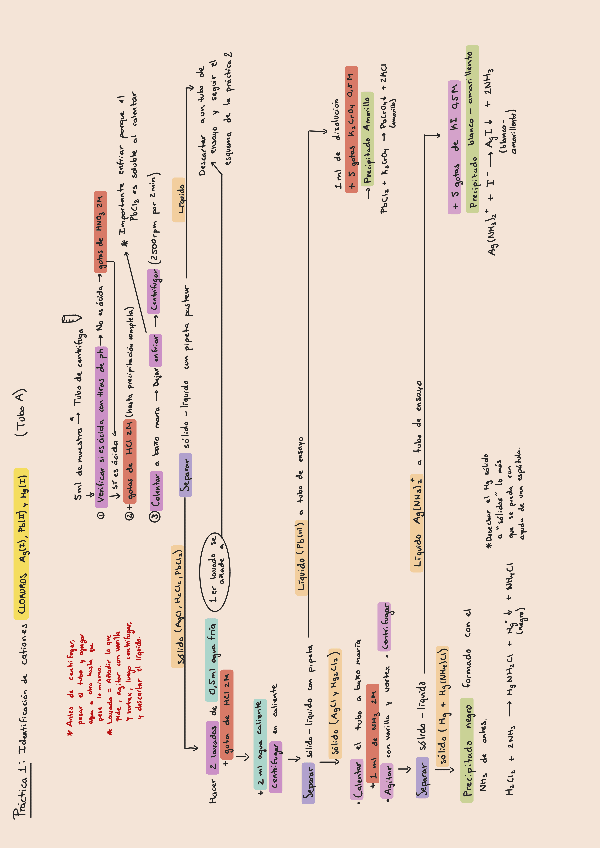 Práctica 1: Identificación de cationes CLORUROS Ag(I), Pb(II) y Hg(I) (Tubo A)
* Antes de centrifugar,
pesar el tubo y agregar
agua a otro hasta que
pese lo mismo.
* Lavado = Añadir lo que
pide, agitar con varilla
y vortex, luego centrifugar,
y decantar el líquido.
5ml de muestra → Tubo de centrífuga
① Verificar si es ácida con tiras de pH → No es ácida → gotas de HNO3 2M
sí es ácida
② + gotas de HCl 2M (hasta precipitación completa)
* Importante enfriar porque el
PbCl2 es soluble al calentar
③ Calentar a baño maría → Dejar enfriar → Centrifugar (2500rpm por 2min)
Separar sólido-líquido con pipeta pasteur
Líquido
Descartar a un tubo de
ensayo y seguir el
esquema de la práctica 2
sólido (AgCl, H2Cl2, PbCl2)
1er lavado se
añade a
Hacer 2 lavados de 0,5ml agua fría
+ gota de HCl 2M
+ 2 ml agua caliente
Centrifugar en caliente
Separar sólido-líquido con pipeta
Líquido (Pb(II)) a tubo de ensayo
1 ml de disolución
+ 5 gotas K2CrO4 0,5M
→ Precipitado Amarillo
PbCl2 + K2CrO4 → PbCrO4↓ + 2KCl
(amarillo)
sólido (AgCl y Hg2Cl2)
· Calentar el tubo a baño maría
+ 1 ml de NH3 2M
· Agitar con varilla y vortex · Centrifugar
Separar sólido-líquido
Líquido Ag(NH3)2+ a tubo de ensayo
+ 5 gotas de KI 0,5M
Precipitado blanco-amarillento
Ag(NH3)2+ + I- → AgI↓ + 2NH3
(blanco-
amarillento)
sólido (Hg + Hg(NH4)Cl)
Precipitado negro formado con el
NH3 de antes.
* Desechar el Hg sólido
a "sólidos" lo más
que se pueda con
ayuda de una espátula.
H2Cl2 + 2NH3 → HgNH2Cl + Hg↓ + NH4Cl
(negro)